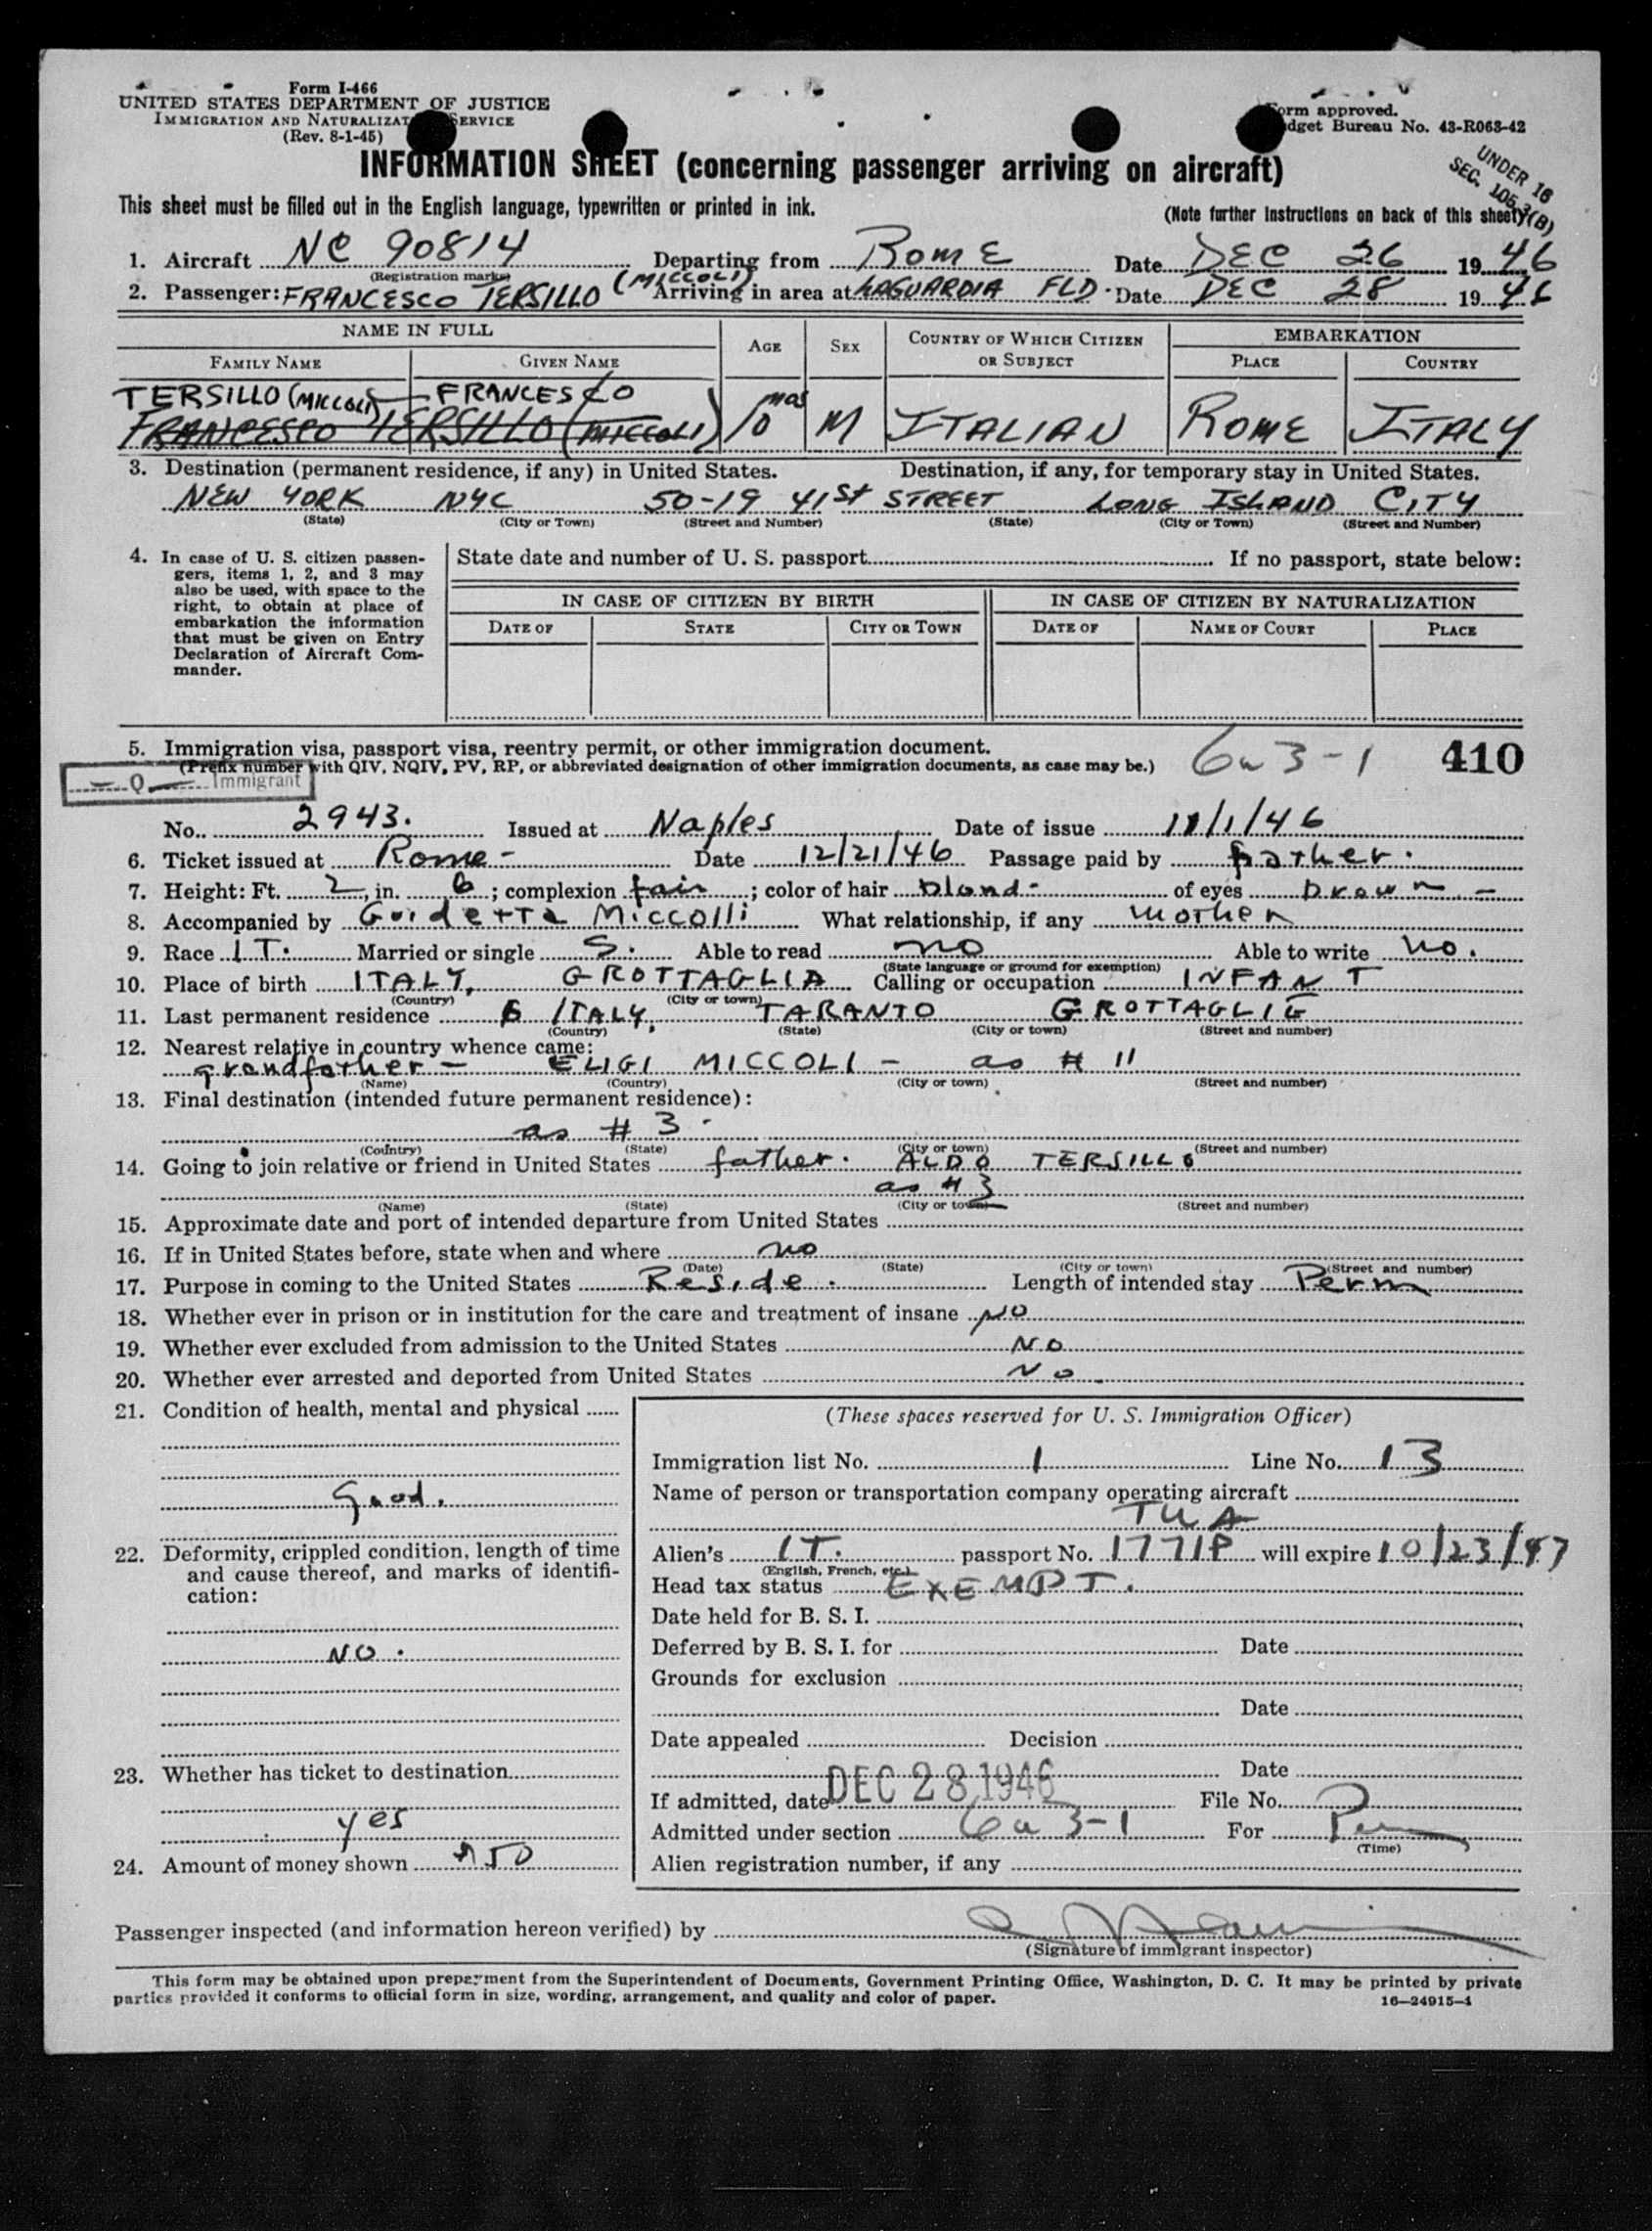 Form I-466
UNITED STATES DEPARTMENT OF JUSTICE
IMMIGRATION AND NATURALIZAT SERVICE
(Rev. 8-1-45)
Form approved.
dget Bureau No. 43-R063-42
INFORMATION SHEET (concerning passenger arriving on aircraft)
UNDER 16
SEC. 105.3(B)
This sheet must be filled out in the English language, typewritten or printed in ink.
(Note further instructions on back of this sheet)
1. Aircraft NC 90814 Departing from ROME Date DEC 26 1946
(Registration marks)
2. Passenger: FRANCESCO TERSILLO (MICCOLI) Arriving in area at LAGUARDIA FLD. Date DEC 28 1946
NAME IN FULL AGE SEX COUNTRY OF WHICH CITIZEN OR SUBJECT EMBARKATION
FAMILY NAME GIVEN NAME PLACE COUNTRY
TERSILLO (MICCOLI) FRANCESCO
FRANCESCO TERSILLO (MICCOLI) 10 mos M ITALIAN ROME ITALY
3. Destination (permanent residence, if any) in United States. Destination, if any, for temporary stay in United States.
NEW YORK NYC 50-19 41St STREET LONG ISLAND CITY
(State) (City or Town) (Street and Number) (State) (City or Town) (Street and Number)
4. In case of U. S. citizen passen-
gers, items 1, 2, and 3 may
also be used, with space to the
right, to obtain at place of
embarkation the information
that must be given on Entry
Declaration of Aircraft Com-
mander.
State date and number of U. S. passport If no passport, state below:
IN CASE OF CITIZEN BY BIRTH IN CASE OF CITIZEN BY NATURALIZATION
DATE OF STATE CITY OR TOWN DATE OF NAME OF COURT PLACE
5. Immigration visa, passport visa, reentry permit, or other immigration document.
(Prefix number with QIV, NQIV, PV, RP, or abbreviated designation of other immigration documents, as case may be.)
6a3-1 410
Q Immigrant
No. 2943. Issued at Naples Date of issue 11/1/46
6. Ticket issued at Rome - Date 12/21/46 Passage paid by father.
7. Height: Ft. 2, in. 6; complexion fair; color of hair blond - of eyes brown -
8. Accompanied by Guidetta Miccolli What relationship, if any mother
9. Race IT. Married or single S. Able to read no Able to write no.
(State language or ground for exemption)
10. Place of birth ITALY, GROTTAGLIA Calling or occupation INFANT
(Country) (City or town)
11. Last permanent residence ITALY, TARANTO GROTTAGLIE
(Country) (State) (City or town) (Street and number)
12. Nearest relative in country whence came:
grandfather - ELIGI MICCOLI - as # 11
(Name) (Country) (City or town) (Street and number)
13. Final destination (intended future permanent residence):
as # 3 -
(Country) (State) (City or town) (Street and number)
14. Going to join relative or friend in United States father. ALDO TERSILLO
as # 3
(Name) (State) (City or town) (Street and number)
15. Approximate date and port of intended departure from United States
16. If in United States before, state when and where no
(Date) (State) (City or town) (Street and number)
17. Purpose in coming to the United States Reside. Length of intended stay Perm
18. Whether ever in prison or in institution for the care and treatment of insane NO
19. Whether ever excluded from admission to the United States NO
20. Whether ever arrested and deported from United States No.
21. Condition of health, mental and physical
Good.
22. Deformity, crippled condition, length of time
and cause thereof, and marks of identifi-
cation:
NO.
23. Whether has ticket to destination
yes
24. Amount of money shown $50
(These spaces reserved for U. S. Immigration Officer)
Immigration list No. 1 Line No. 13
Name of person or transportation company operating aircraft
TWA
Alien's IT. passport No. 1771P will expire 10/23/47
(English, French, etc.)
Head tax status EXEMPT.
Date held for B. S. I.
Deferred by B. S. I. for Date
Grounds for exclusion
Date
Date appealed Decision
Date
If admitted, date DEC 28 1946 File No.
Admitted under section 6a3-1 For Perm
(Time)
Alien registration number, if any
Passenger inspected (and information hereon verified) by
(Signature of immigrant inspector)
This form may be obtained upon prepayment from the Superintendent of Documents, Government Printing Office, Washington, D. C. It may be printed by private
parties provided it conforms to official form in size, wording, arrangement, and quality and color of paper. 16—24915-1